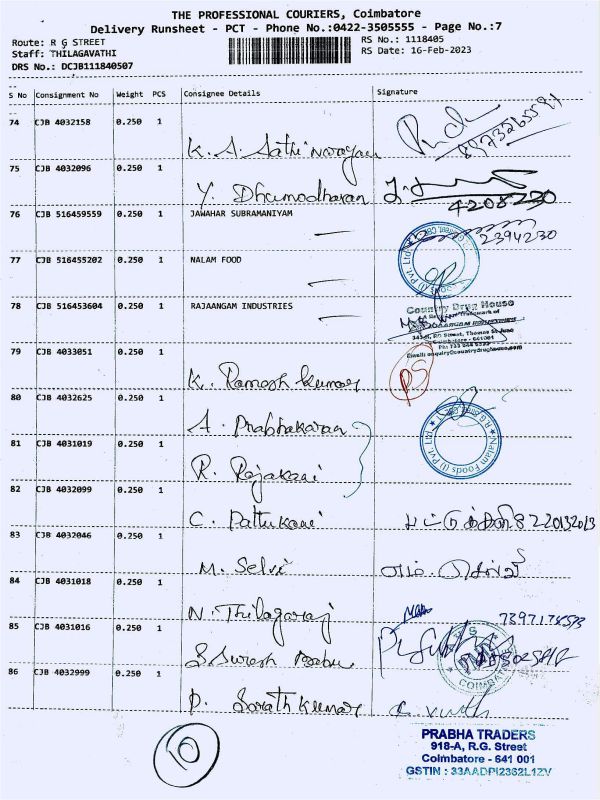 THE PROFESSIONAL COURIERS, Coimbatore
Delivery Runsheet - PCT - Phone No.:0422-3505555 - Page No.:7
Route: R G STREET
Staff: THILAGAVATHI
DRS No.: DCJB111840507
RS No.: 1118405
RS Date: 16-Feb-2023
S No Consignment No Weight PCS Consignee Details Signature
74 CJB 4032158 0.250 1
K. S. Sathi Narayan
75 CJB 4032096 0.250 1
Y. Dhamodharan
76 CJB 516459559 0.250 1 JAWAHAR SUBRAMANIYAM
2394230
77 CJB 516455202 0.250 1 NALAM FOOD
78 CJB 516453604 0.250 1 RAJAANGAM INDUSTRIES
Country Drug House
Coimbatore - 641001
79 CJB 4033051 0.250 1
K. Ramesh Kumar
80 CJB 4032625 0.250 1
A. Prabhakaran
81 CJB 4031019 0.250 1
R. Rajakani
Nalam Foods (I) Pvt. Ltd
82 CJB 4032099 0.250 1
C. Pattukani
83 CJB 4032046 0.250 1
M. Selvi
எம். செல்வி
84 CJB 4031018 0.250 1
N. Thilagaraj
85 CJB 4031016 0.250 1
S Suresh Babu
86 CJB 4032999 0.250 1
P. Sarath Kumar
10
PRABHA TRADERS
918-A, R.G. Street
Coimbatore - 641 001
GSTIN : 33AADPI2362L1ZV